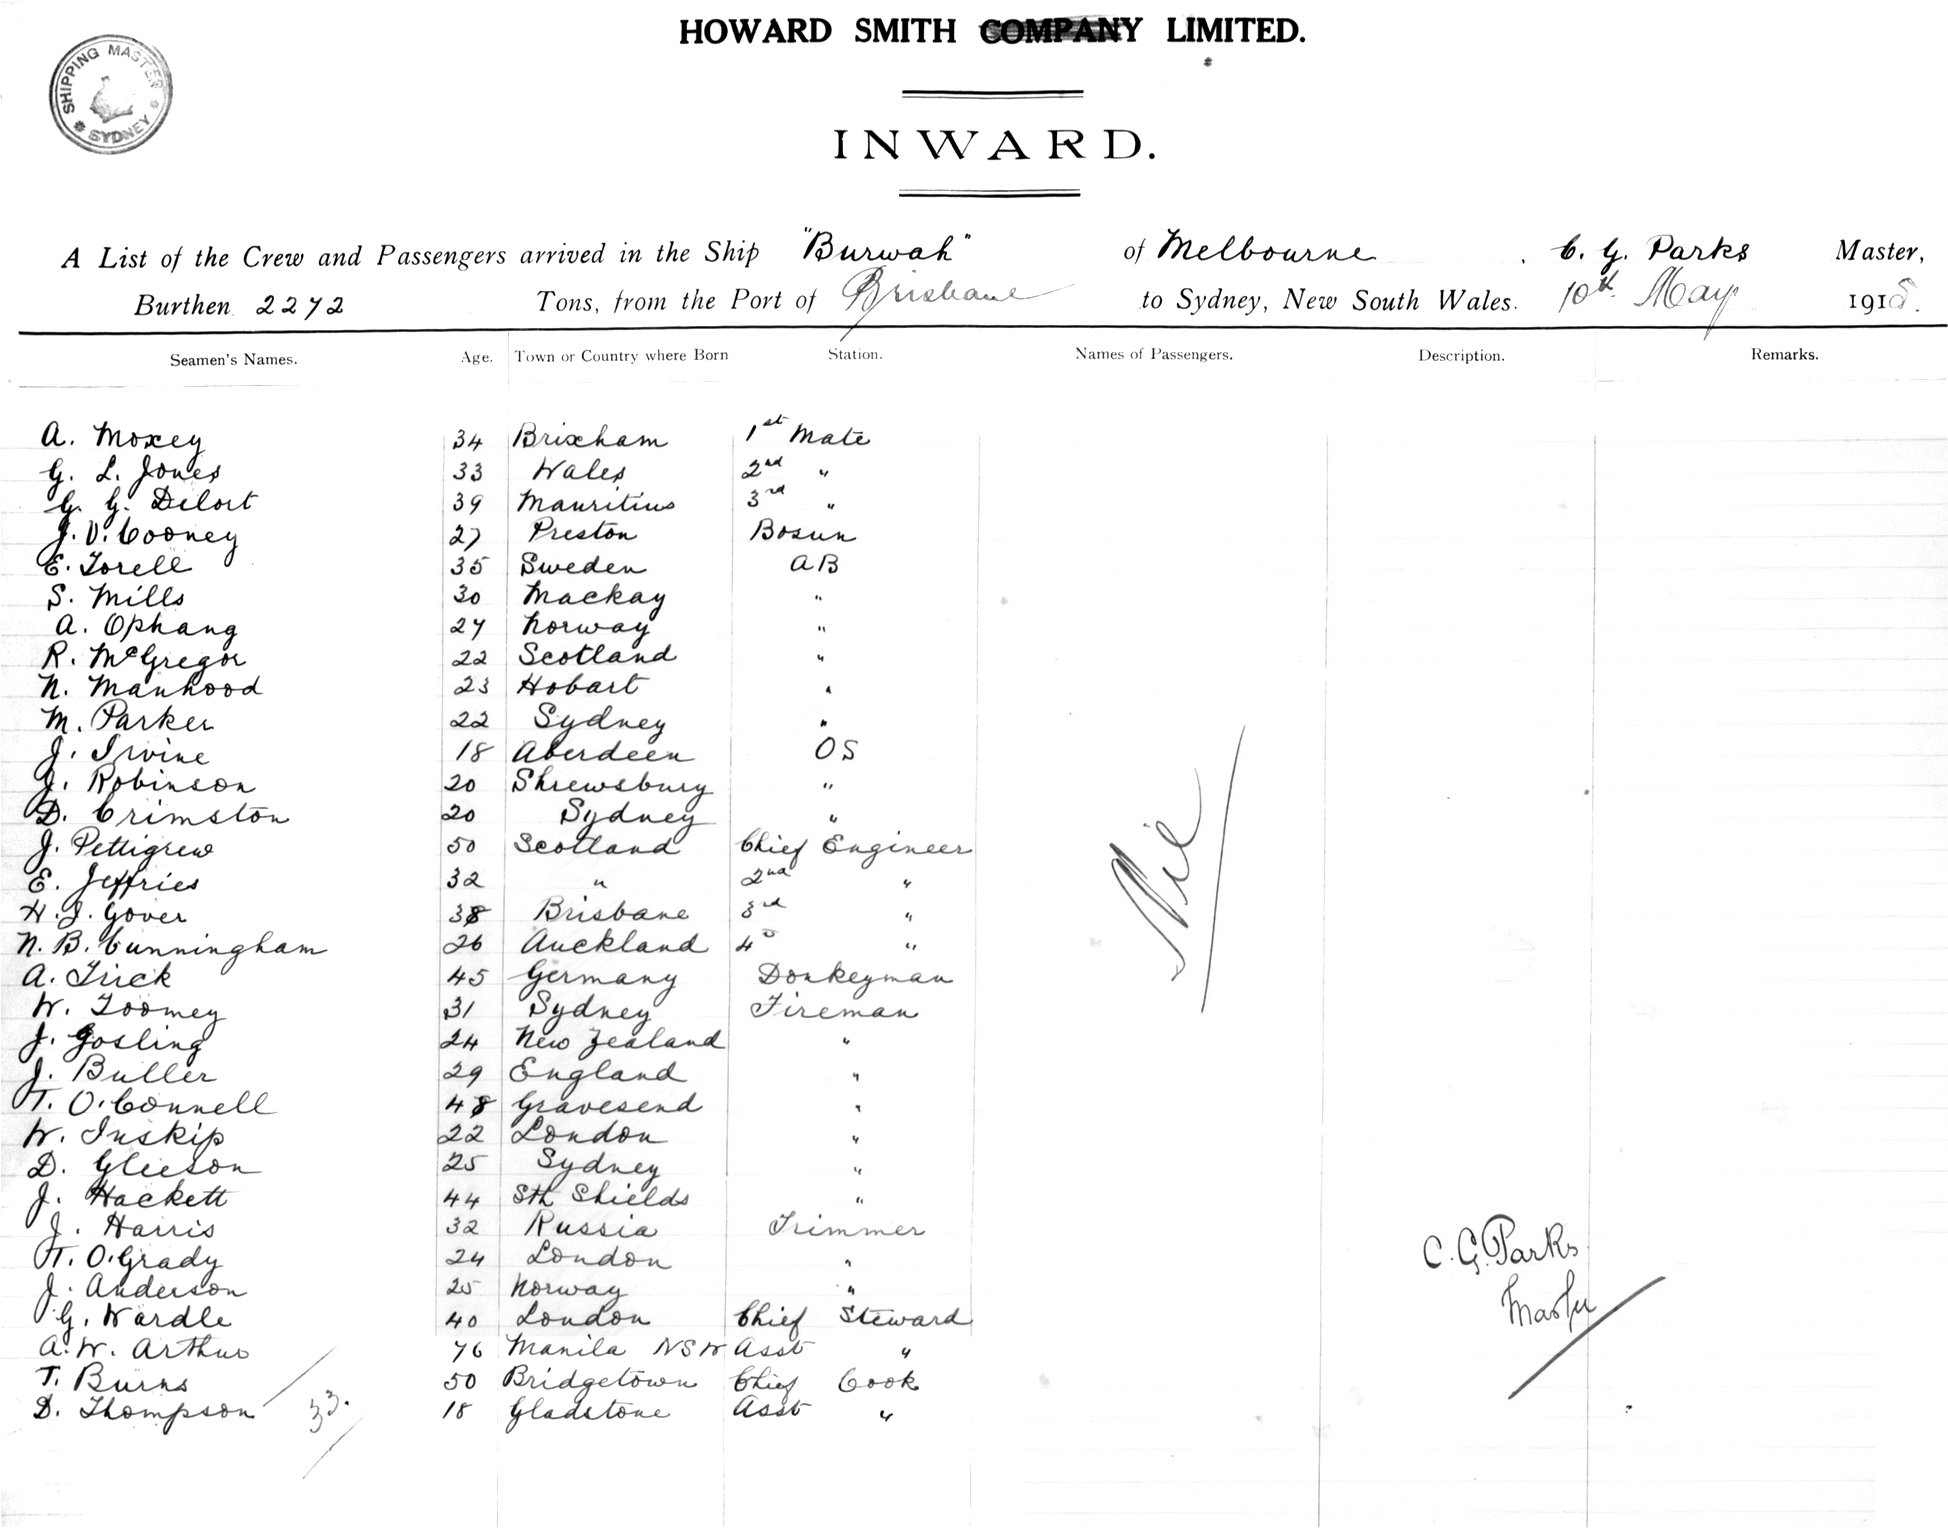 HOWARD SMITH COMPANY LIMITED.
SHIPPING MASTER
SYDNEY
INWARD.
A List of the Crew and Passengers arrived in the Ship "Burwah" of Melbourne, C. G. Parks Master,
Burthen 2272 Tons, from the Port of Brisbane to Sydney, New South Wales. 10th May 1918.
Seamen's Names. Age. Town or Country where Born Station. Names of Passengers. Description. Remarks.
A. Moxey 34 Brixham 1st Mate
G. L. Jones 33 Wales 2nd "
G. G. Delort 39 Mauritius 3rd "
J. V. Cooney 27 Preston Bosun
E. Torell 35 Sweden AB
S. Mills 30 Mackay "
A. Ophang 27 Norway "
R. McGregor 22 Scotland "
N. Manhood 23 Hobart "
M. Parker 22 Sydney "
J. Irvine 18 Aberdeen OS
J. Robinson 20 Shrewsbury "
D. Crimston 20 Sydney "
J. Pettigrew 50 Scotland Chief Engineer
E. Jeffries 32 " 2nd "
H. J. Gover 38 Brisbane 3rd "
N. B. Cunningham 26 Auckland 4th "
A. Frick 45 Germany Donkeyman
W. Toomey 31 Sydney Fireman
J. Gosling 24 New Zealand "
J. Buller 29 England "
T. O'Connell 48 Gravesend "
W. Inskip 22 London "
D. Gleeson 25 Sydney "
J. Hackett 44 Sth Shields "
J. Harris 32 Russia Trimmer
T. O'Grady 24 London "
J. Anderson 25 Norway "
G. Wardle 40 London Chief Steward
A. W. Arthur 76 Manila NSW Asst "
T. Burns 50 Bridgetown Chief Cook
D. Thompson 18 Gladstone Asst "
33.
Nil
C. G. Parks
Master